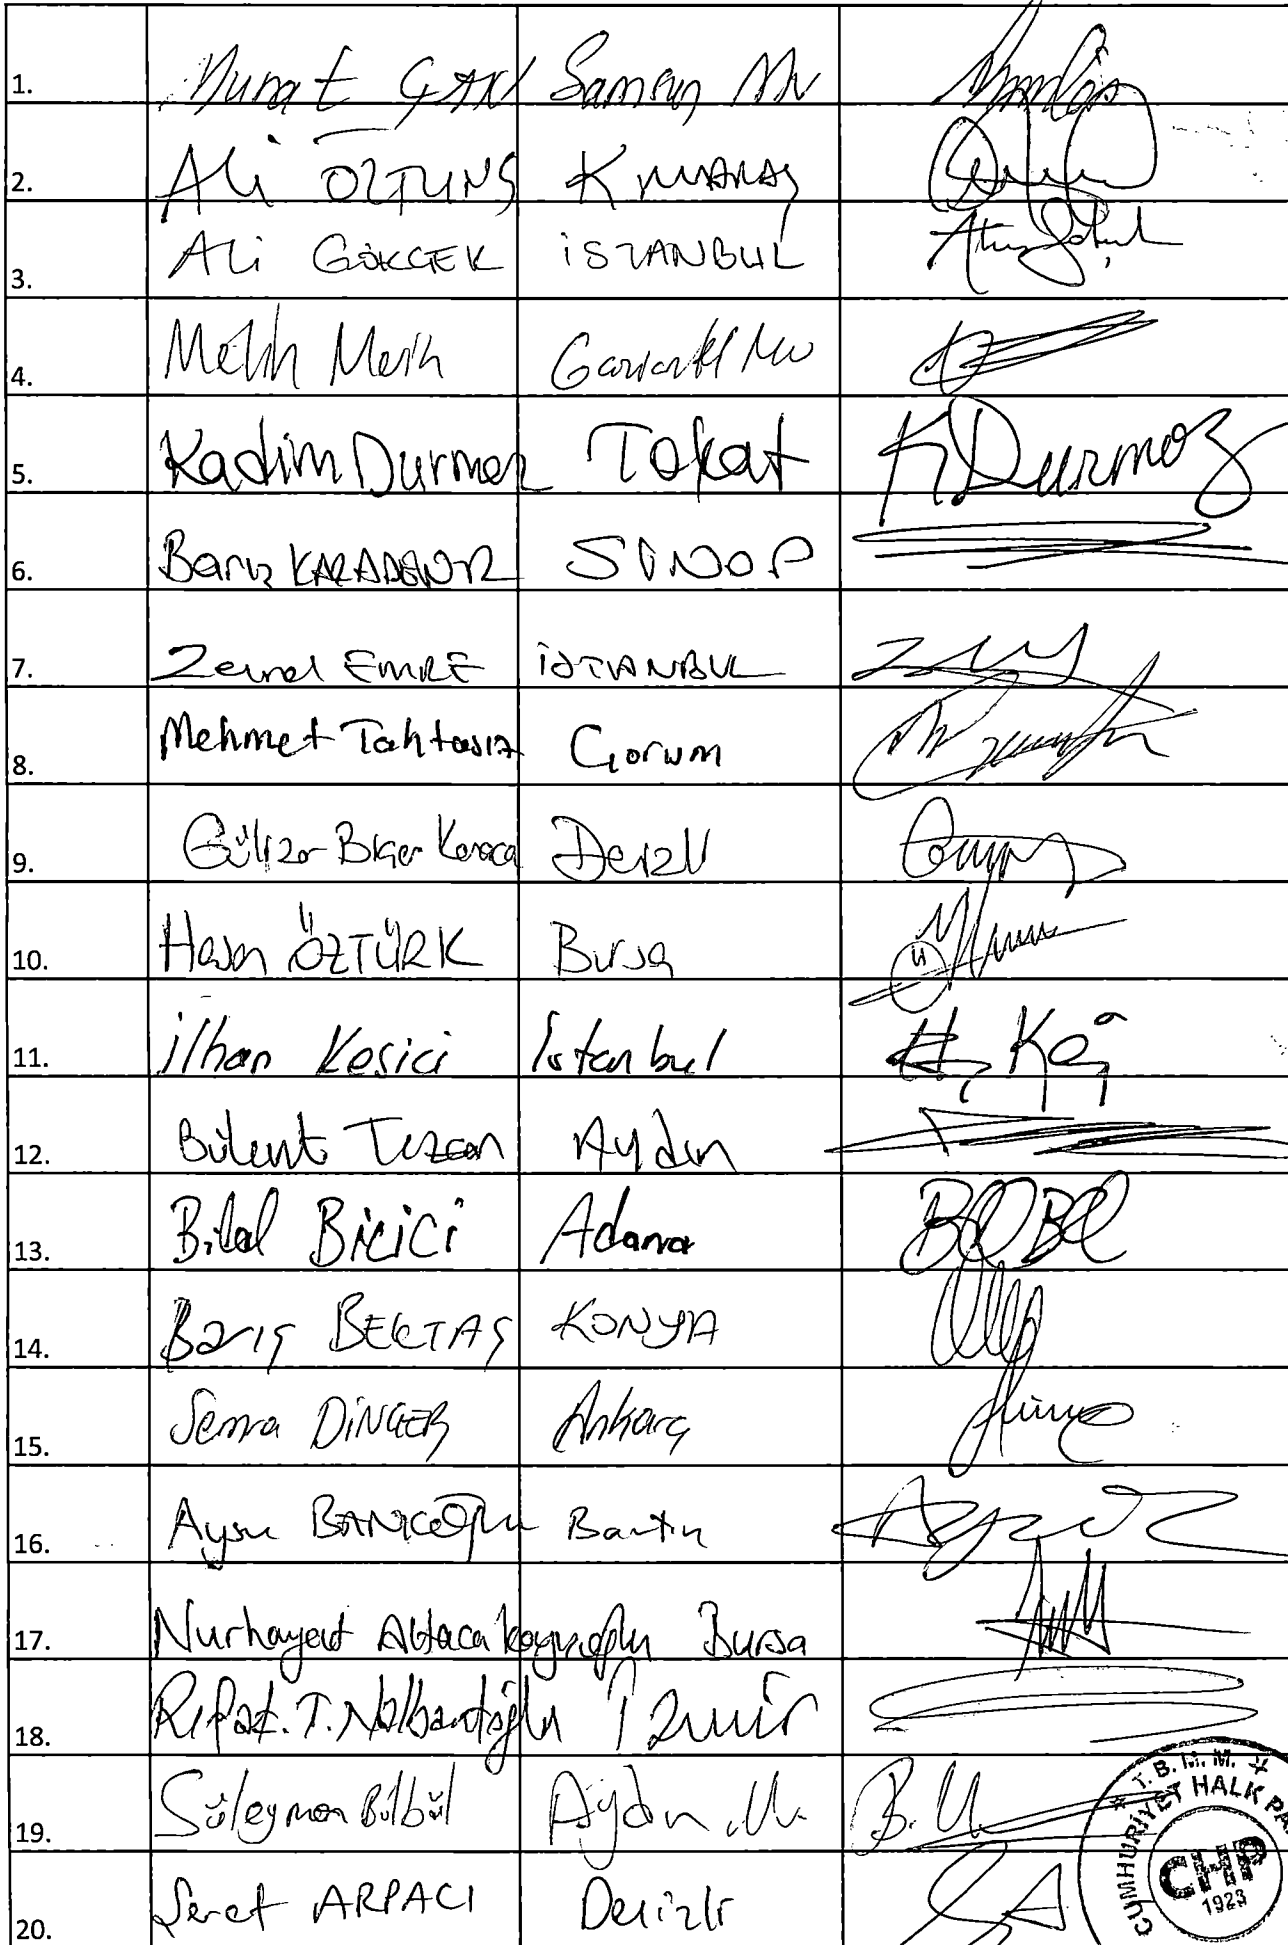 1. Murat ÇAN Samsun Mv
2. Ali ÖZTUNÇ K MARAŞ
3. Ali GÖKÇEK İSTANBUL
4. Melih Meriç Gaziantep Mv
5. Kadim Durmaz Tokat K.Durmaz
6. Barış KARADENİZ SİNOP
7. Zeynel EMRE İSTANBUL
8. Mehmet Tahtasız Çorum
9. Gülizar Biçer Karaca Denizli
10. Hasan ÖZTÜRK Bursa
11. İlhan Kesici İstanbul
12. Bülent Tezcan Aydın
13. Bilal BİCİCİ Adana
14. Barış BEKTAŞ KONYA
15. Semra DİNÇER Ankara
16. Aysu BANKOĞLU Bartın
17. Nurhayat Altaca Kayışoğlu Bursa
18. Rıfat. T. Nalbantoğlu İzmir
19. Süleyman Bülbül Aydın M.
20. Şeref ARPACI Denizli
T.B.M.M.
CUMHURİYET HALK
CHP
1923